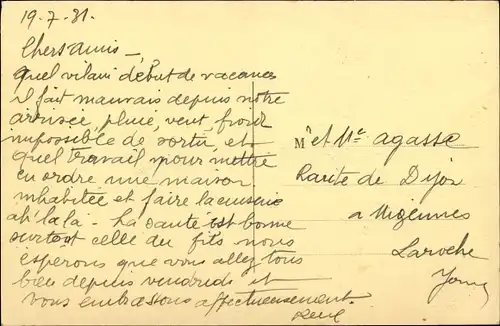 19-7-31.
Chers amis –
quel vilain début de vacances
il fait mauvais depuis notre
arrivée, pluie, vent froid
impossible de sortir, et
quel travail pour mettre
en ordre une maison
inhabitée et faire la cuisine
ah! la là – La santé est bonne
surtout celle du fils nous
esperons que vous allez tous
bien depuis vendredi et
vous embrassons affectueusement.
M et Mme agasse
de Dijon
a Migennes
Laroche
Yonne